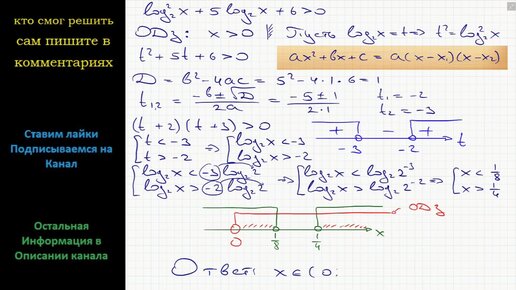 кто смог решить
сам пишите в
комментариях
Ставим лайки
Подписываемся на
Канал
Остальная
Информация в
Описании канала
log₂²x + 5 log₂x + 6 > 0
ОДЗ: x > 0 Пусть log₂x = t ⇒ t² = log₂²x
t² + 5t + 6 > 0 ax² + bx + c = a(x - x₁)(x - x₂)
D = b² - 4ac = 5² - 4·1·6 = 1
t₁,₂ = (-b ± √D)/(2a) = (-5 ± 1)/(2·1) t₁ = -2
t₂ = -3
(t + 2)(t + 3) > 0 + -3 - -2 + t
[t < -3 ⇒ [log₂x < -3
[t > -2 [log₂x > -2
[log₂x < -3 log₂2 ⇒ [log₂x < log₂2⁻³ ⇒ [x < 1/8
[log₂x > -2 log₂2 [log₂x > log₂2⁻² [x > 1/4
ОДЗ
0 1/8 1/4 x
Ответ: x ∈ (0;